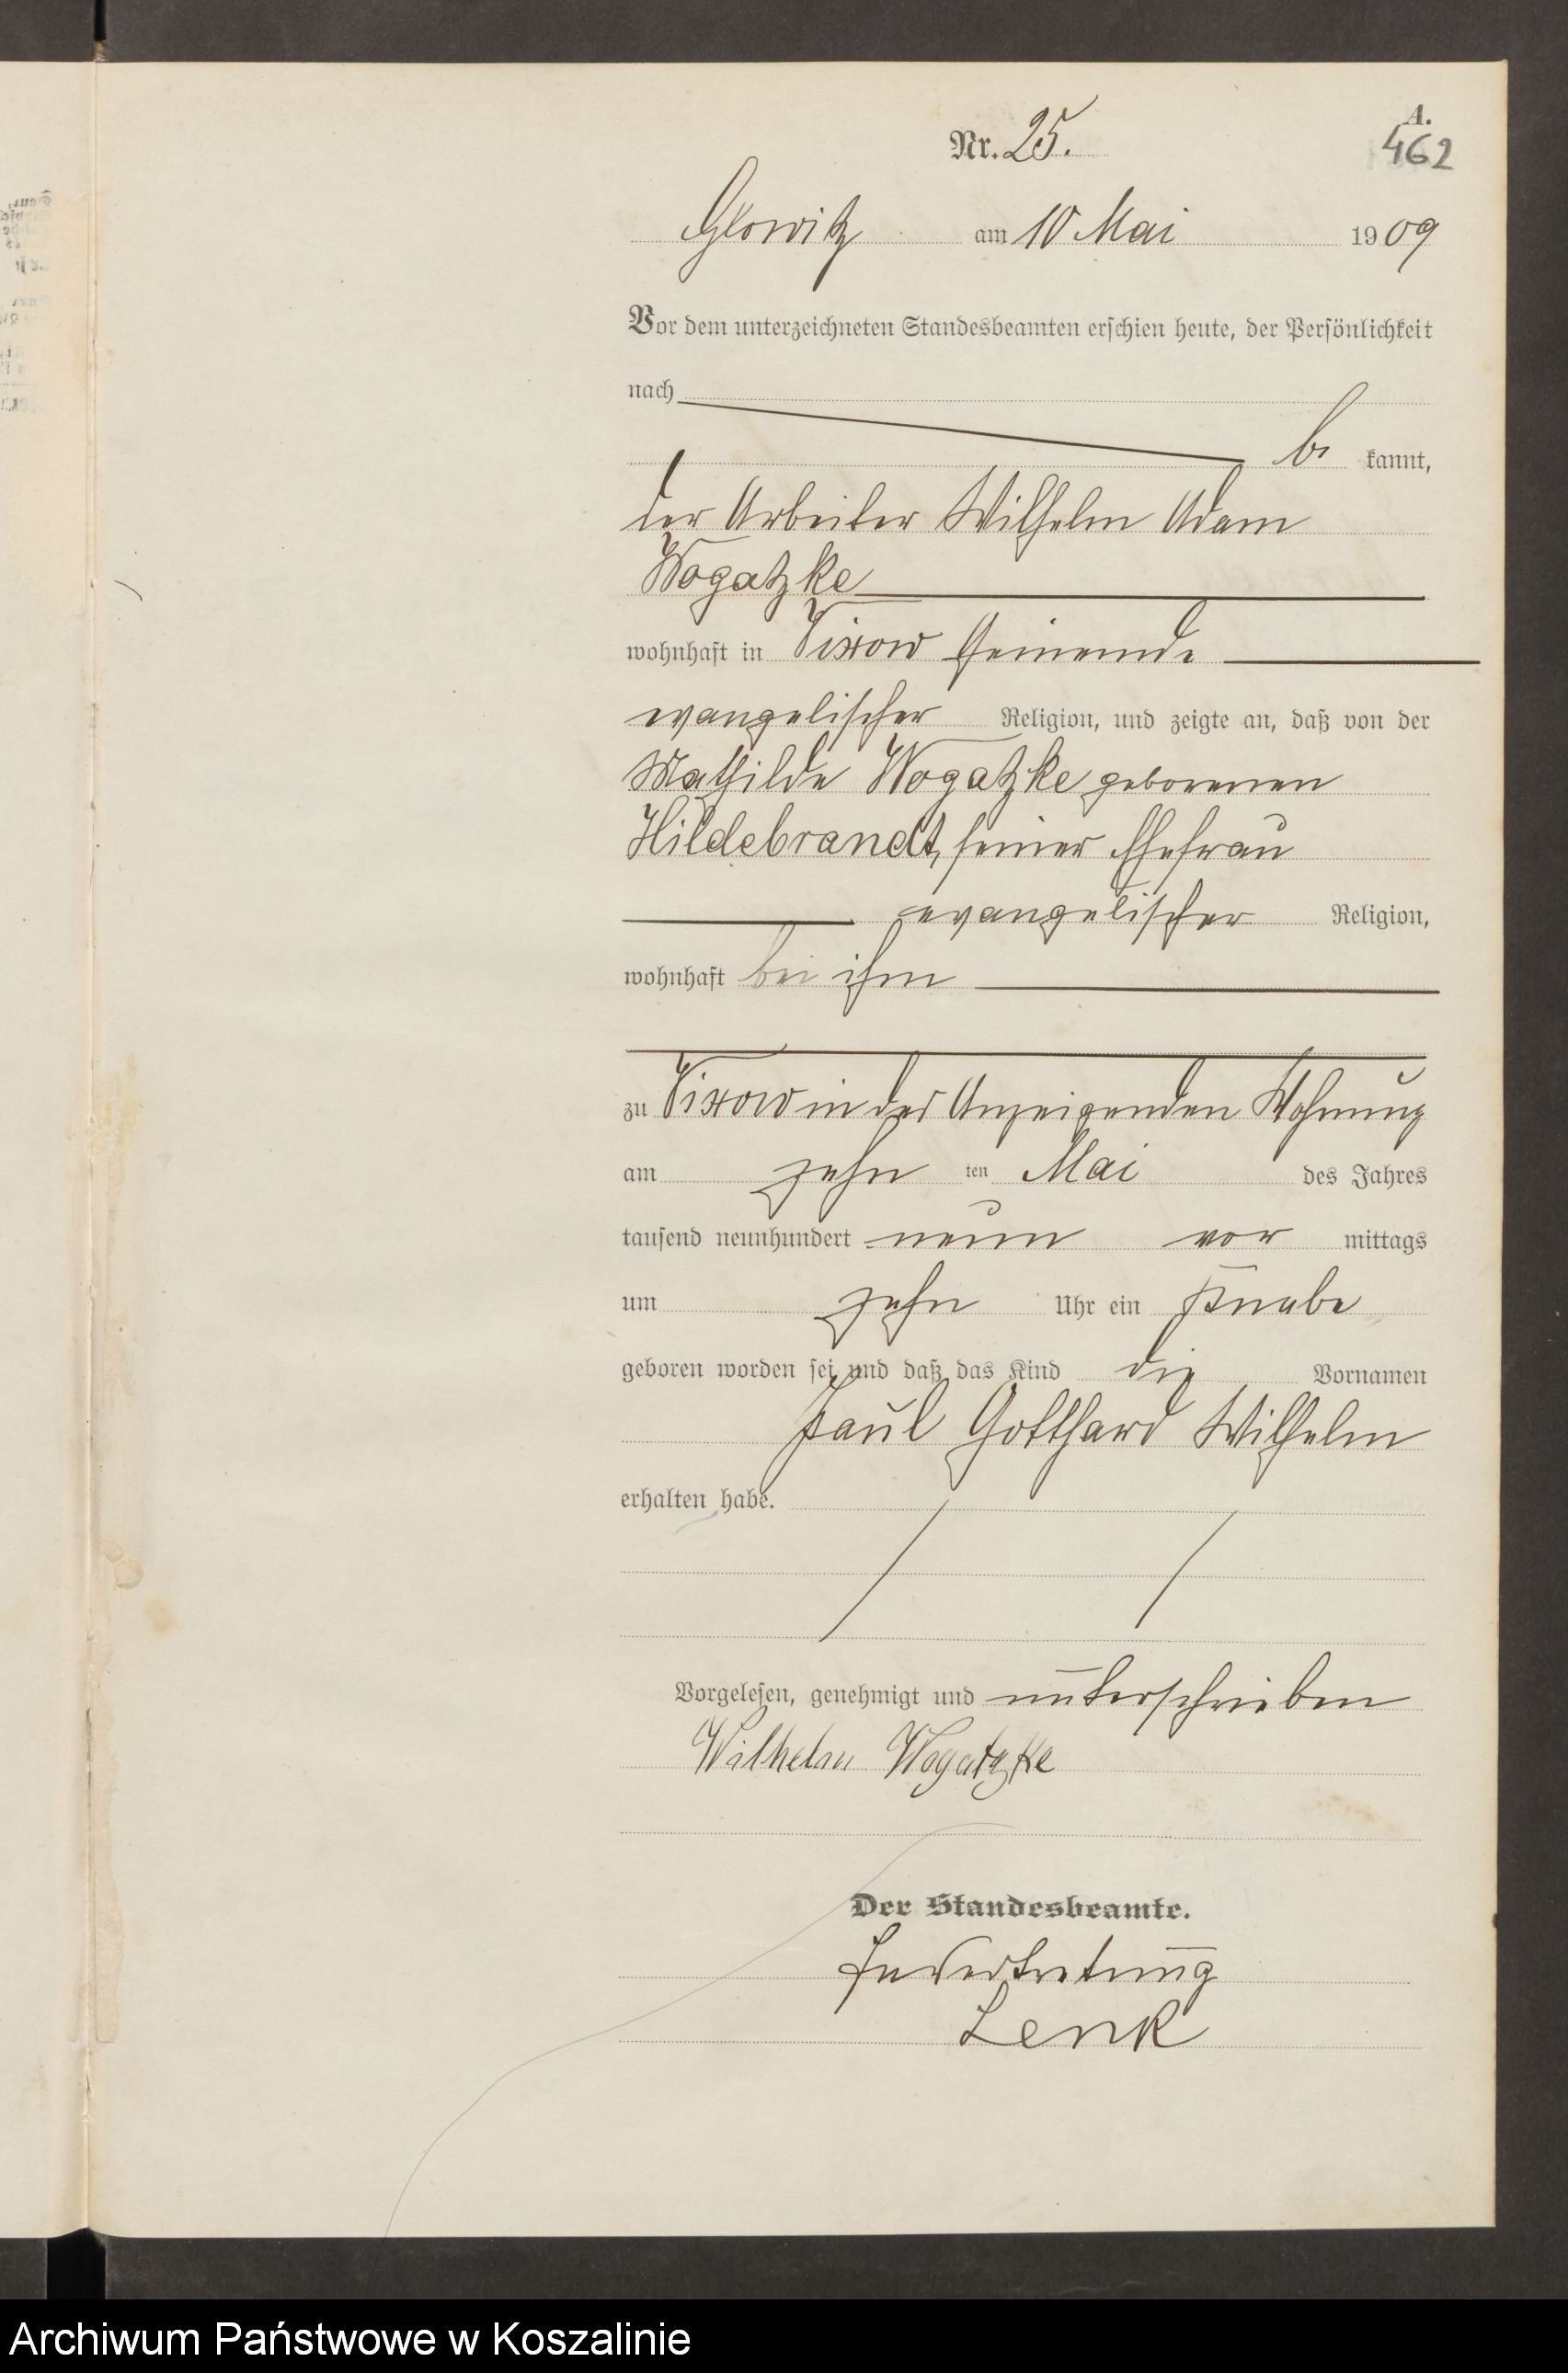 A.
Nr. 25.
462
Glowitz am 10 Mai 1909
Vor dem unterzeichneten Standesbeamten erschien heute, der Persönlichkeit
nach
be kannt,
der Arbeiter Wilhelm Adam
Wogatzke
wohnhaft in Vixow Gemeinde
evangelischer Religion, und zeigte an, daß von der
Mathilde Wogatzke geborenen
Hildebrandt, seiner Ehefrau
evangelischer Religion,
wohnhaft bei ihm
zu Vixow in der Anzeigenden Wohnung
am zehn ten Mai des Jahres
tausend neunhundert neun vor mittags
um zehn Uhr ein Knabe
geboren worden sei und daß das Kind die Vornamen
Paul Gotthard Wilhelm
erhalten habe.
Vorgelesen, genehmigt und unterschrieben
Wilhelm Wogatzke
Der Standesbeamte.
In Vertretung
Lenk
Archiwum Państwowe w Koszalinie